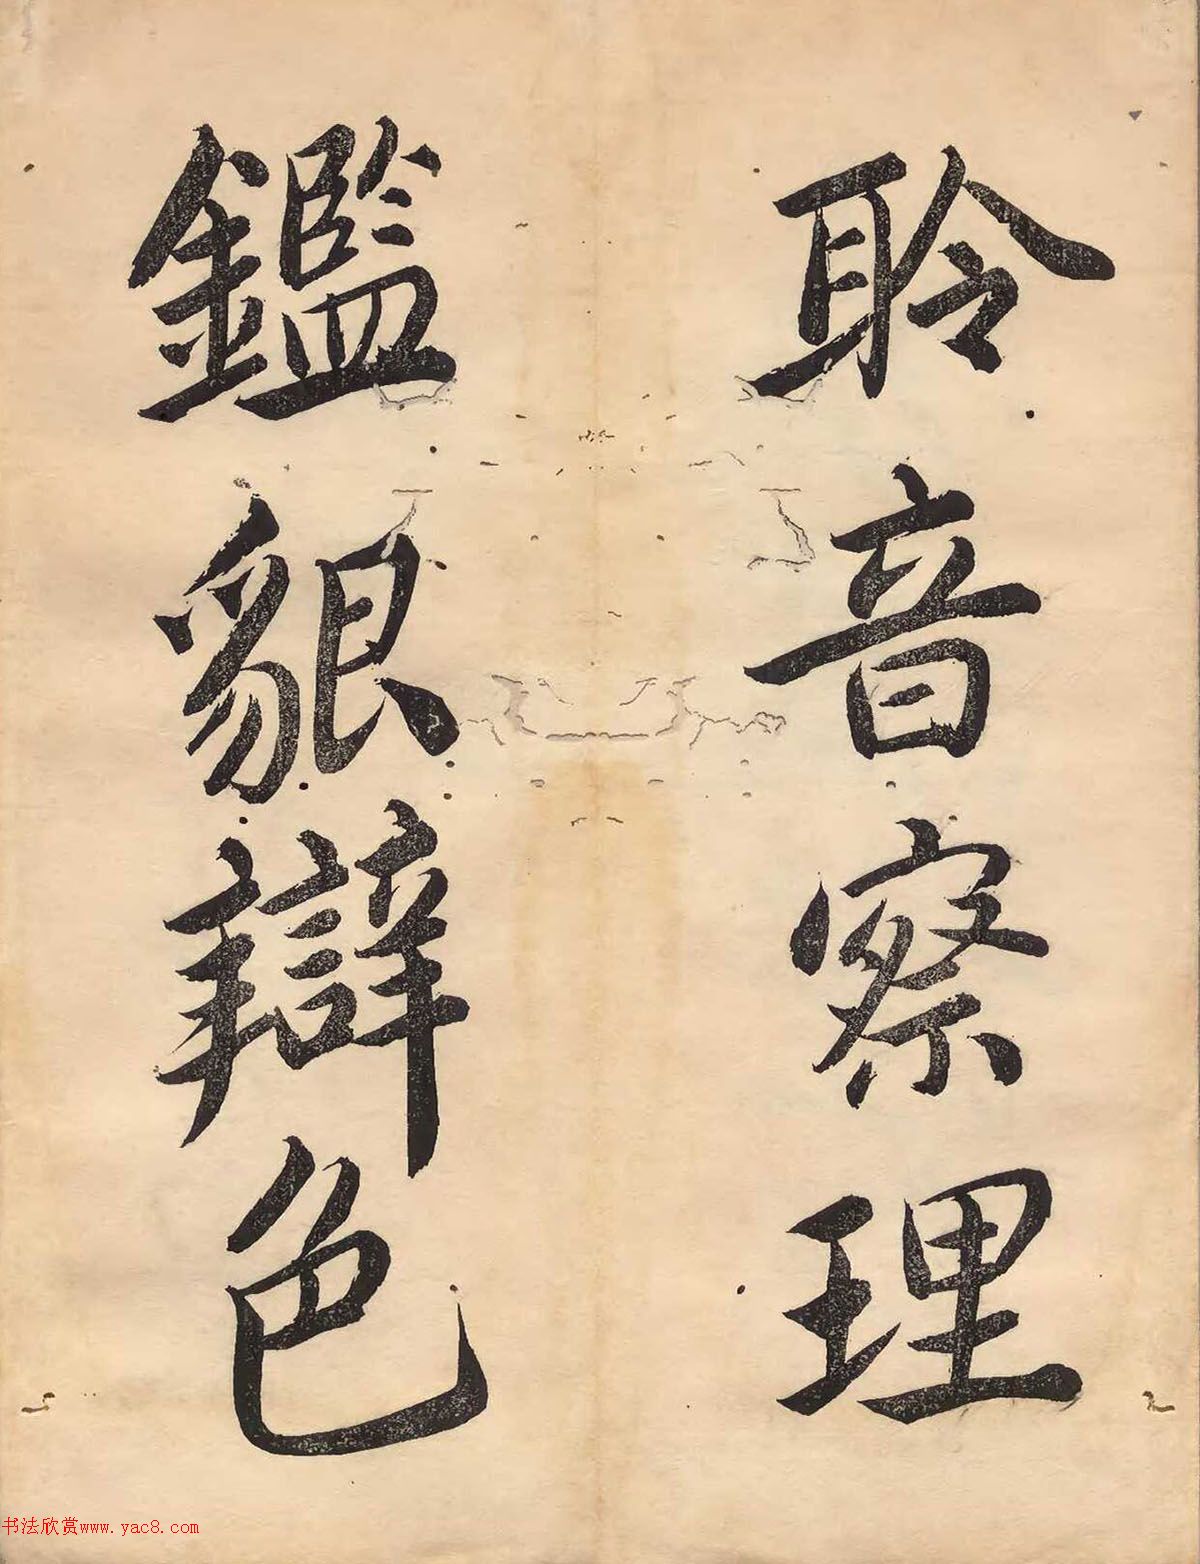 聆音察理
鑑貇辯色
书法欣赏www.yac8.com